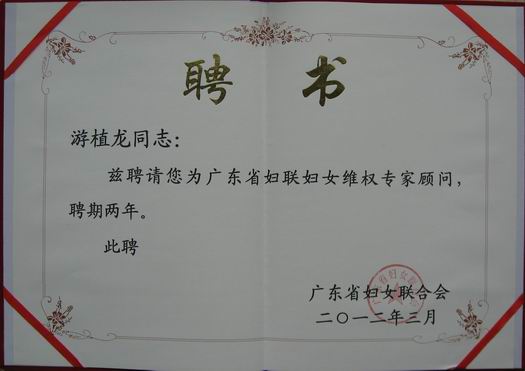 聘书
游植龙同志：
兹聘请您为广东省妇联妇女维权专家顾问，
聘期两年。
此聘
广东省妇女联合会
二〇一二年三月